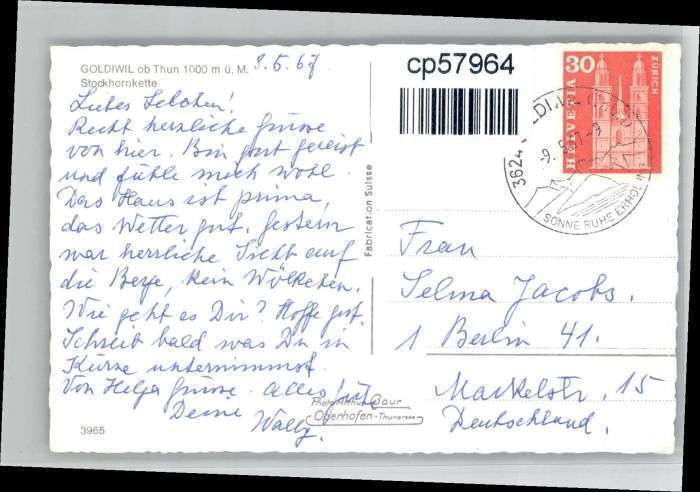 GOLDIWIL ob Thun 1000 m ü. M.
Stockhornkette
8.5.67
Liebes Selchen!
Recht herzliche Grüsse
von hier. Bin gut gereist
und fühle mich wohl.
Das Haus ist prima,
das Wetter gut, gestern
war herrliche Sicht auf
die Berge, kein Wölkchen.
Wie geht es Dir? Hoffe gut.
Schreib bald was Du in
Kürze unternimmst.
Von Helga Grüsse. Alles Gute
Deine
Wally.
3965
Fabrication Suisse
Photo Arthur Baur
Oberhofen-Thunersee
cp57964
30
ZÜRICH
HELVETIA
3624
-9. 5.67-9
SONNE RUHE ERHOLUNG
Frau
Selma Jacobs.
1 Berlin 41.
Markelstr. 15
Deutschland.